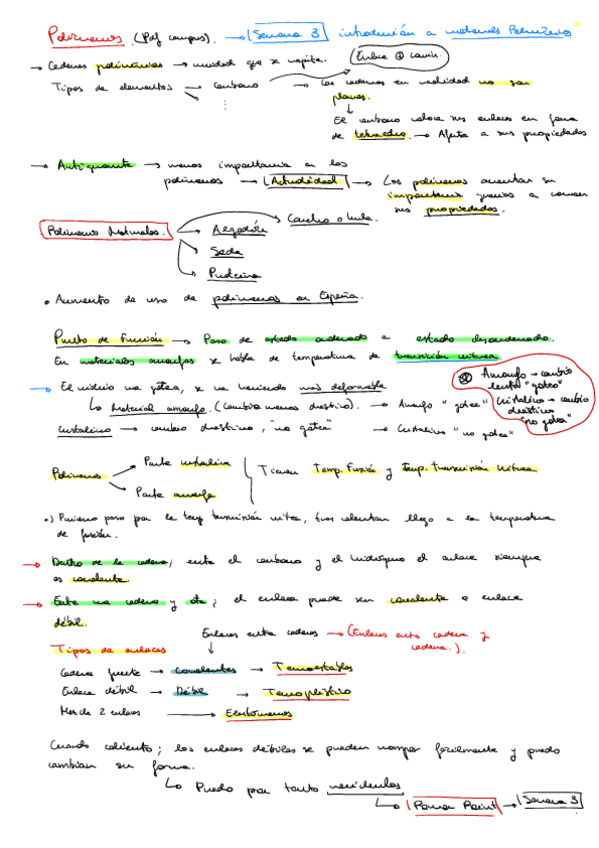 Polimeros (Pdf campus). → Semana 3 introducción a materiales Poliméricos
→ Cadenas poliméricas → unidad que se repite. Enlace C covalen.
Tipos de elementos → carbono → Las cadenas en realidad no son planas.
El carbono coloca sus enlaces en forma
de tetraedro. → Afecta a sus propiedades
→ Antiguamente → menos importancia a los
polímeros → Actualidad → Los polímeros aumentan su
importancia gracias a conocer
sus propiedades.
Polímeros Naturales. → Algodón
Caucho o hule.
Seda
Proteína
• Aumento de uso de polímeros en España.
Punto de Fusión → Paso de estado ordenado a estado desordenado.
En materiales amorfos se habla de temperatura de transición vítrea.
→ El vidrio no gotea, se va haciendo más deformable
Material amorfo. (Cambio menos drástico). → Amorfo "gotea"
Cristalino → cambio drástico, "no gotea" → Cristalino "no gotea"
Amorfo → cambio
lento "goteo"
Cristalino → cambio
drástico
"no gotea"
Polímeros
Parte cristalina
Parte amorfa
Tienen Temp. Fusión y Temp. Transición vítrea
•) Primero paso por la temp transición vítrea, tras calentar llego a la temperatura
de fusión.
→ Dentro de la cadena; entre el carbono y el hidrógeno el enlace siempre
es covalente.
→ Entre una cadena y otra; el enlace puede ser covalente o enlace
débil.
Enlaces entre cadenas → (Enlaces entre cadena y
cadena.).
Tipos de enlaces
Cadena fuerte → Covalentes → Termoestables
Enlace débil → Débil → Termoplástico
Mezcla 2 enlaces → Elastómeros
Cuando caliento; los enlaces débiles se pueden romper fácilmente y puedo
cambiar su forma.
Puedo por tanto reciclarlos
Power Point → Semana 3